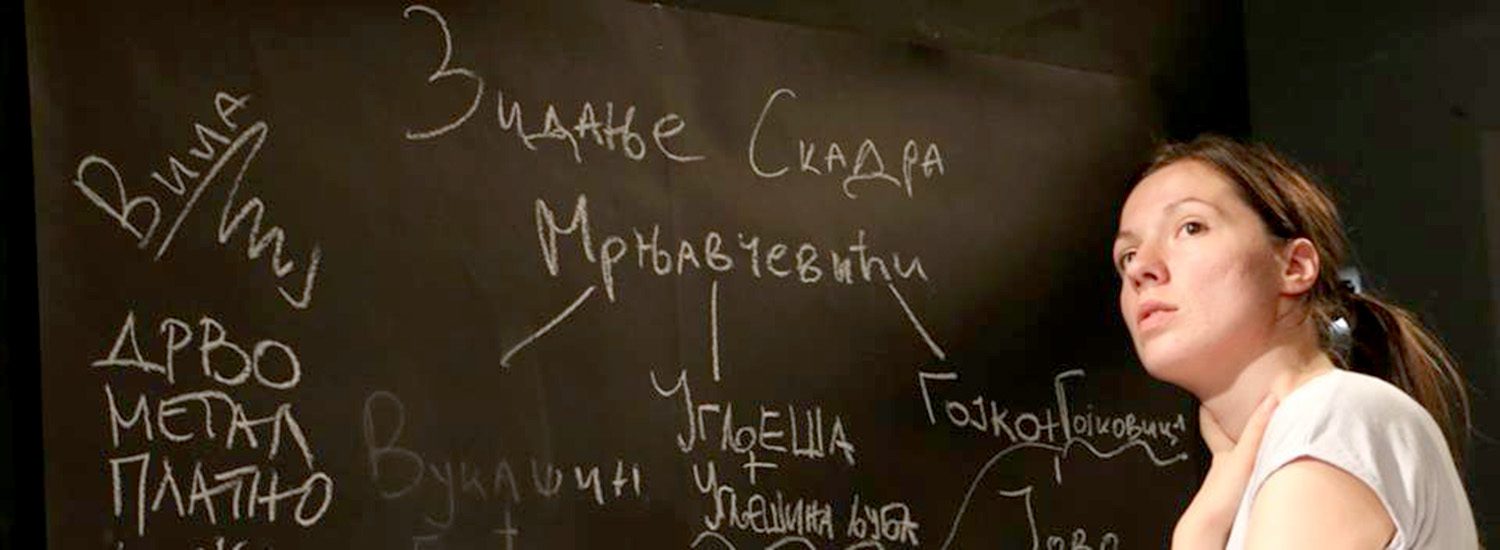 Зидање Скадра
Мрњавчевићи
ДРВО
МЕТАЛ
ПЛАТНО
Вукашин
+
Угљеша
+
Угљешина љуба
Гојко + Гојковица
Јово